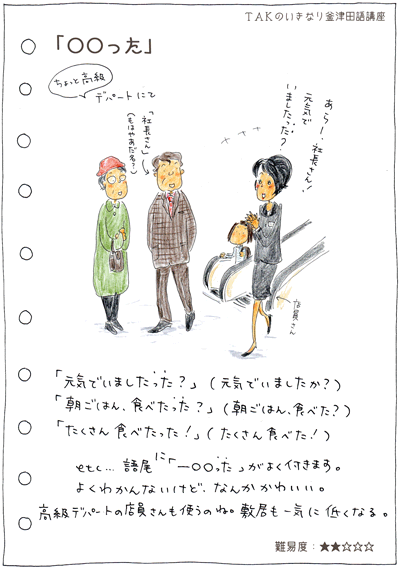 TAKのいきなり釜津田語講座
「〇〇った」
ちょっと高級
デパートにて
「社長さん」
(もはやあだ名?)
あらー!、社長さん!
元気で
いましたった?
店員さん
「元気でいましたった?」(元気でいましたか?)
「朝ごはん、食べたった?」(朝ごはん、食べた?)
「たくさん食べたった!」(たくさん食べた!)
etc… 語尾に「ー〇〇った」がよく付きます。
よくわかんないけど、なんかかわいい。
高級デパートの店員さんも使うのね。敷居も一気に低くなる。
難易度:★★☆☆☆